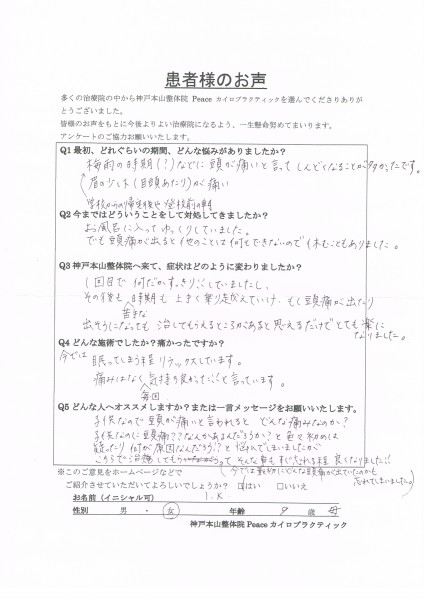 患者様のお声
多くの治療院の中から神戸本山整体院 Peace カイロプラクティックを選んでくださりありが
とうございました。
皆様のお声をもとに今後よりよい治療院になるよう、一生懸命努めてまいります。
アンケートのご協力お願いします。
Q1 最初、どれぐらいの期間、どんな悩みがありましたか？
梅雨の時期(？)などに頭が痛いと言ってしんどくなることが多かったです。
眉の少し下(目頭あたり)が痛い
学校からの帰宅後や登校前の朝
Q2 今まではどういうことをして対処してきましたか？
お風呂に入ってゆっくりしていました。
でも頭痛が出ると他のことは何もできないので休むこともありました。
Q3 神戸本山整体院へ来て、症状はどのように変わりましたか？
1回目で何だかすっきりしていましたし、
その後も苦手な時期も上手く乗り越えていけ、もし頭痛が出たり
出そうになっても治してもらえるところがあると思えるだけでとても楽に
なりました。
Q4 どんな施術でしたか？痛かったですか？
今では眠ってしまう程リラックスしています。
痛みはなく毎回気持ち良かった!!と言っています。
Q5 どんな人へオススメしますか？または一言メッセージをお願いいたします。
子供なので頭が痛いと言われると どんな痛みなのか？
子供なのに頭痛？？なんかあるんだろうか？と色々初めは
疑ったり何が原因なんだろう？と悩んでしまいましたが
こちらで治療してもらって そんな事もすぐ忘れる程良くなりました!!
(今では最初にどんな頭痛が出ていたのかも
忘れてしまいました。)
※このご意見をホームページなどで
ご紹介させていただいてよろしいでしょうか？ ☑はい □いいえ
お名前（イニシャル可） I.K
性別 男 ・ 女 年齢 9 歳 母
神戸本山整体院 Peace カイロプラクティック